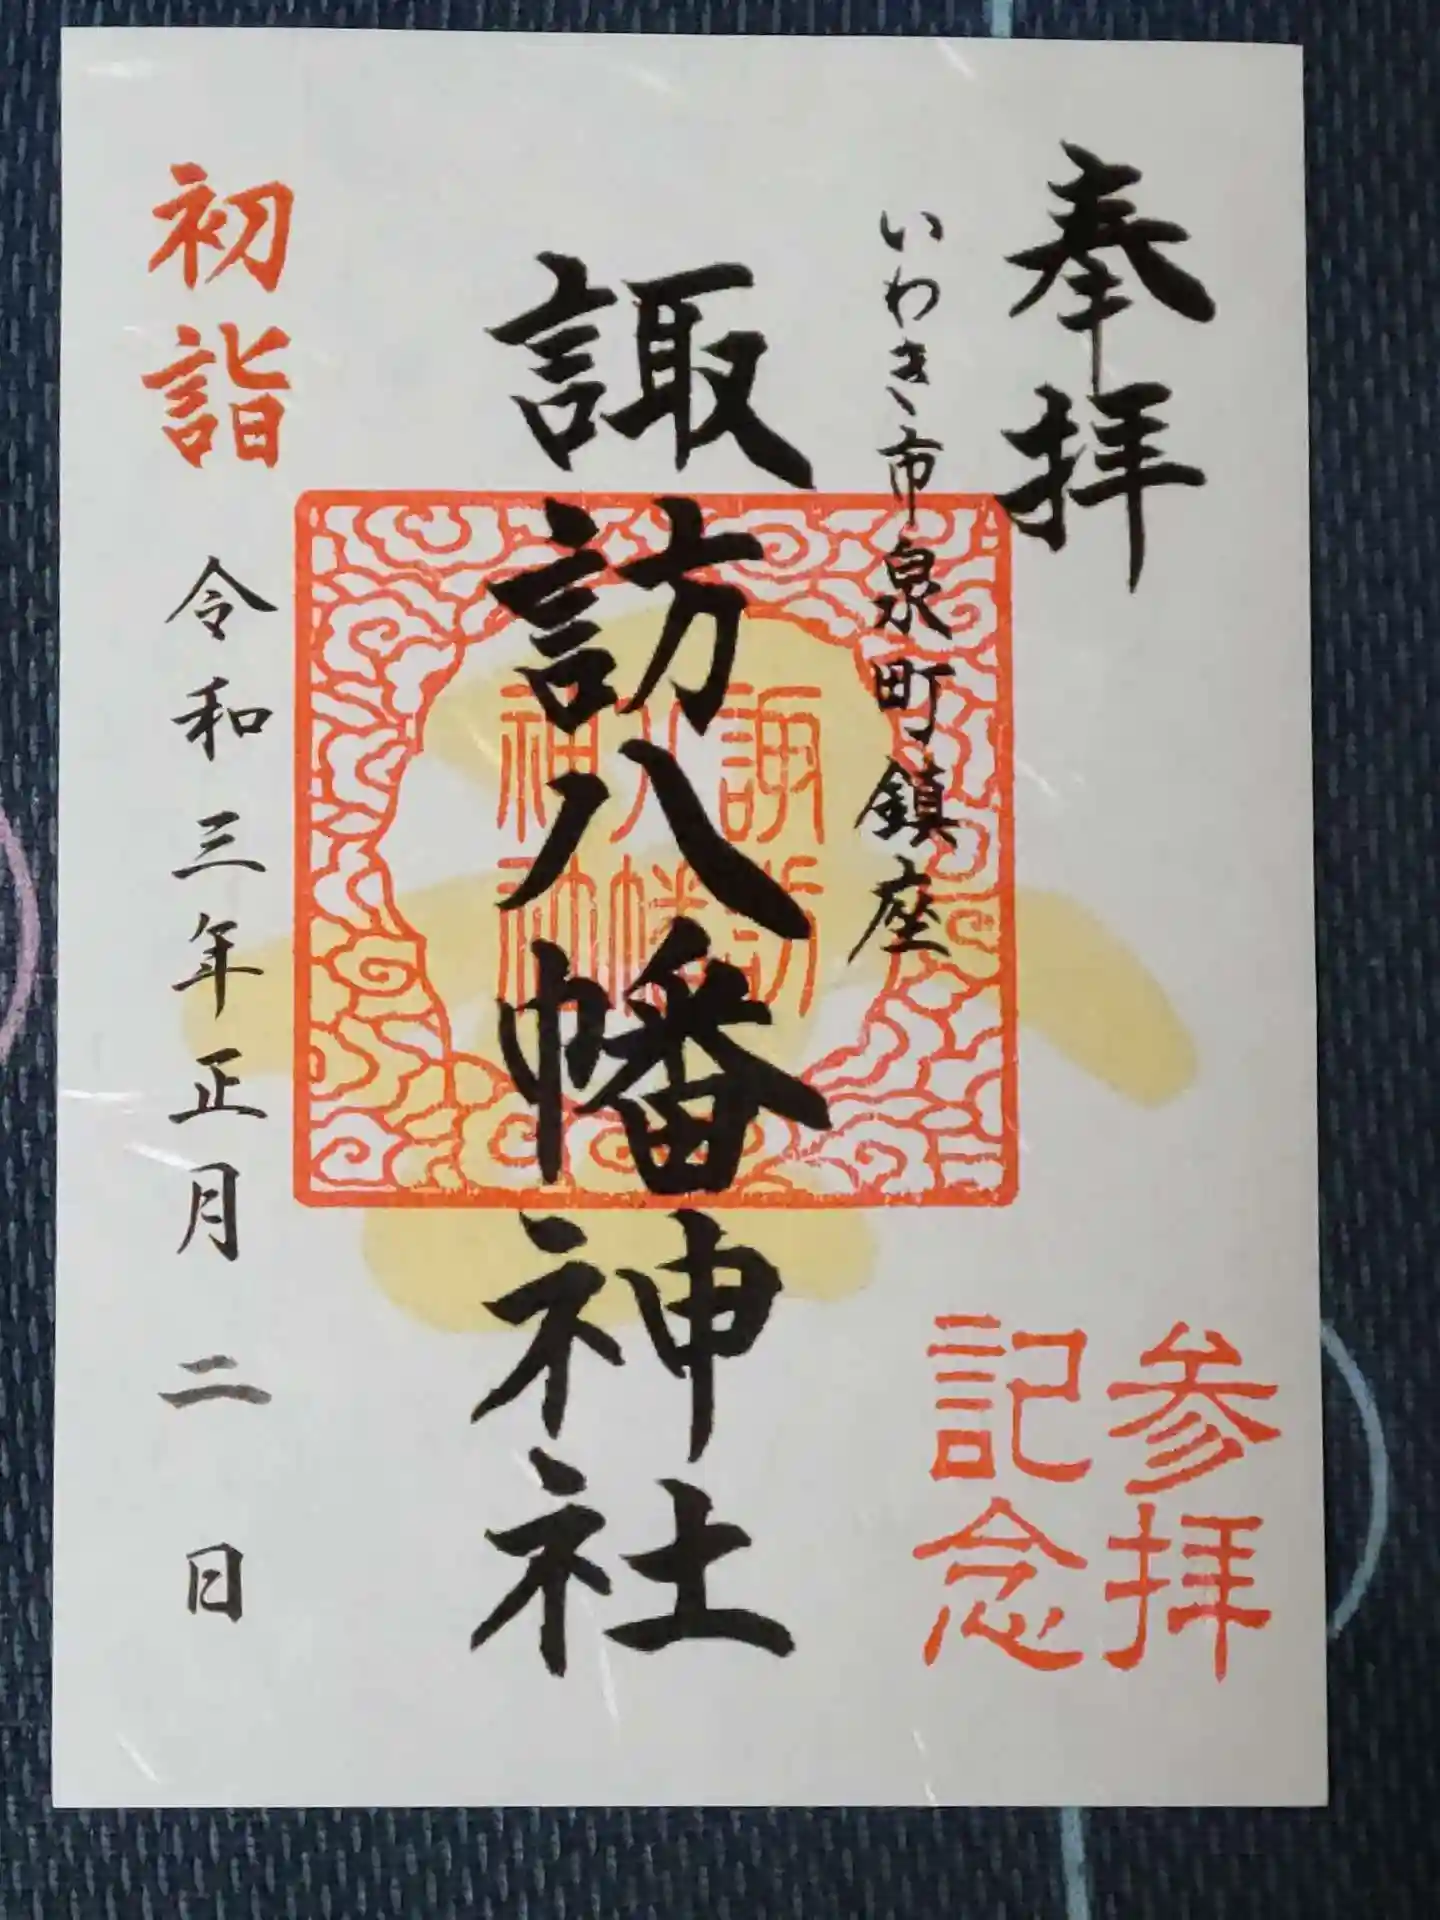 奉拝
いわき市泉町鎮座
諏訪八幡神社
初詣
令和三年正月二日
参拝
記念
諏訪
八幡
神社